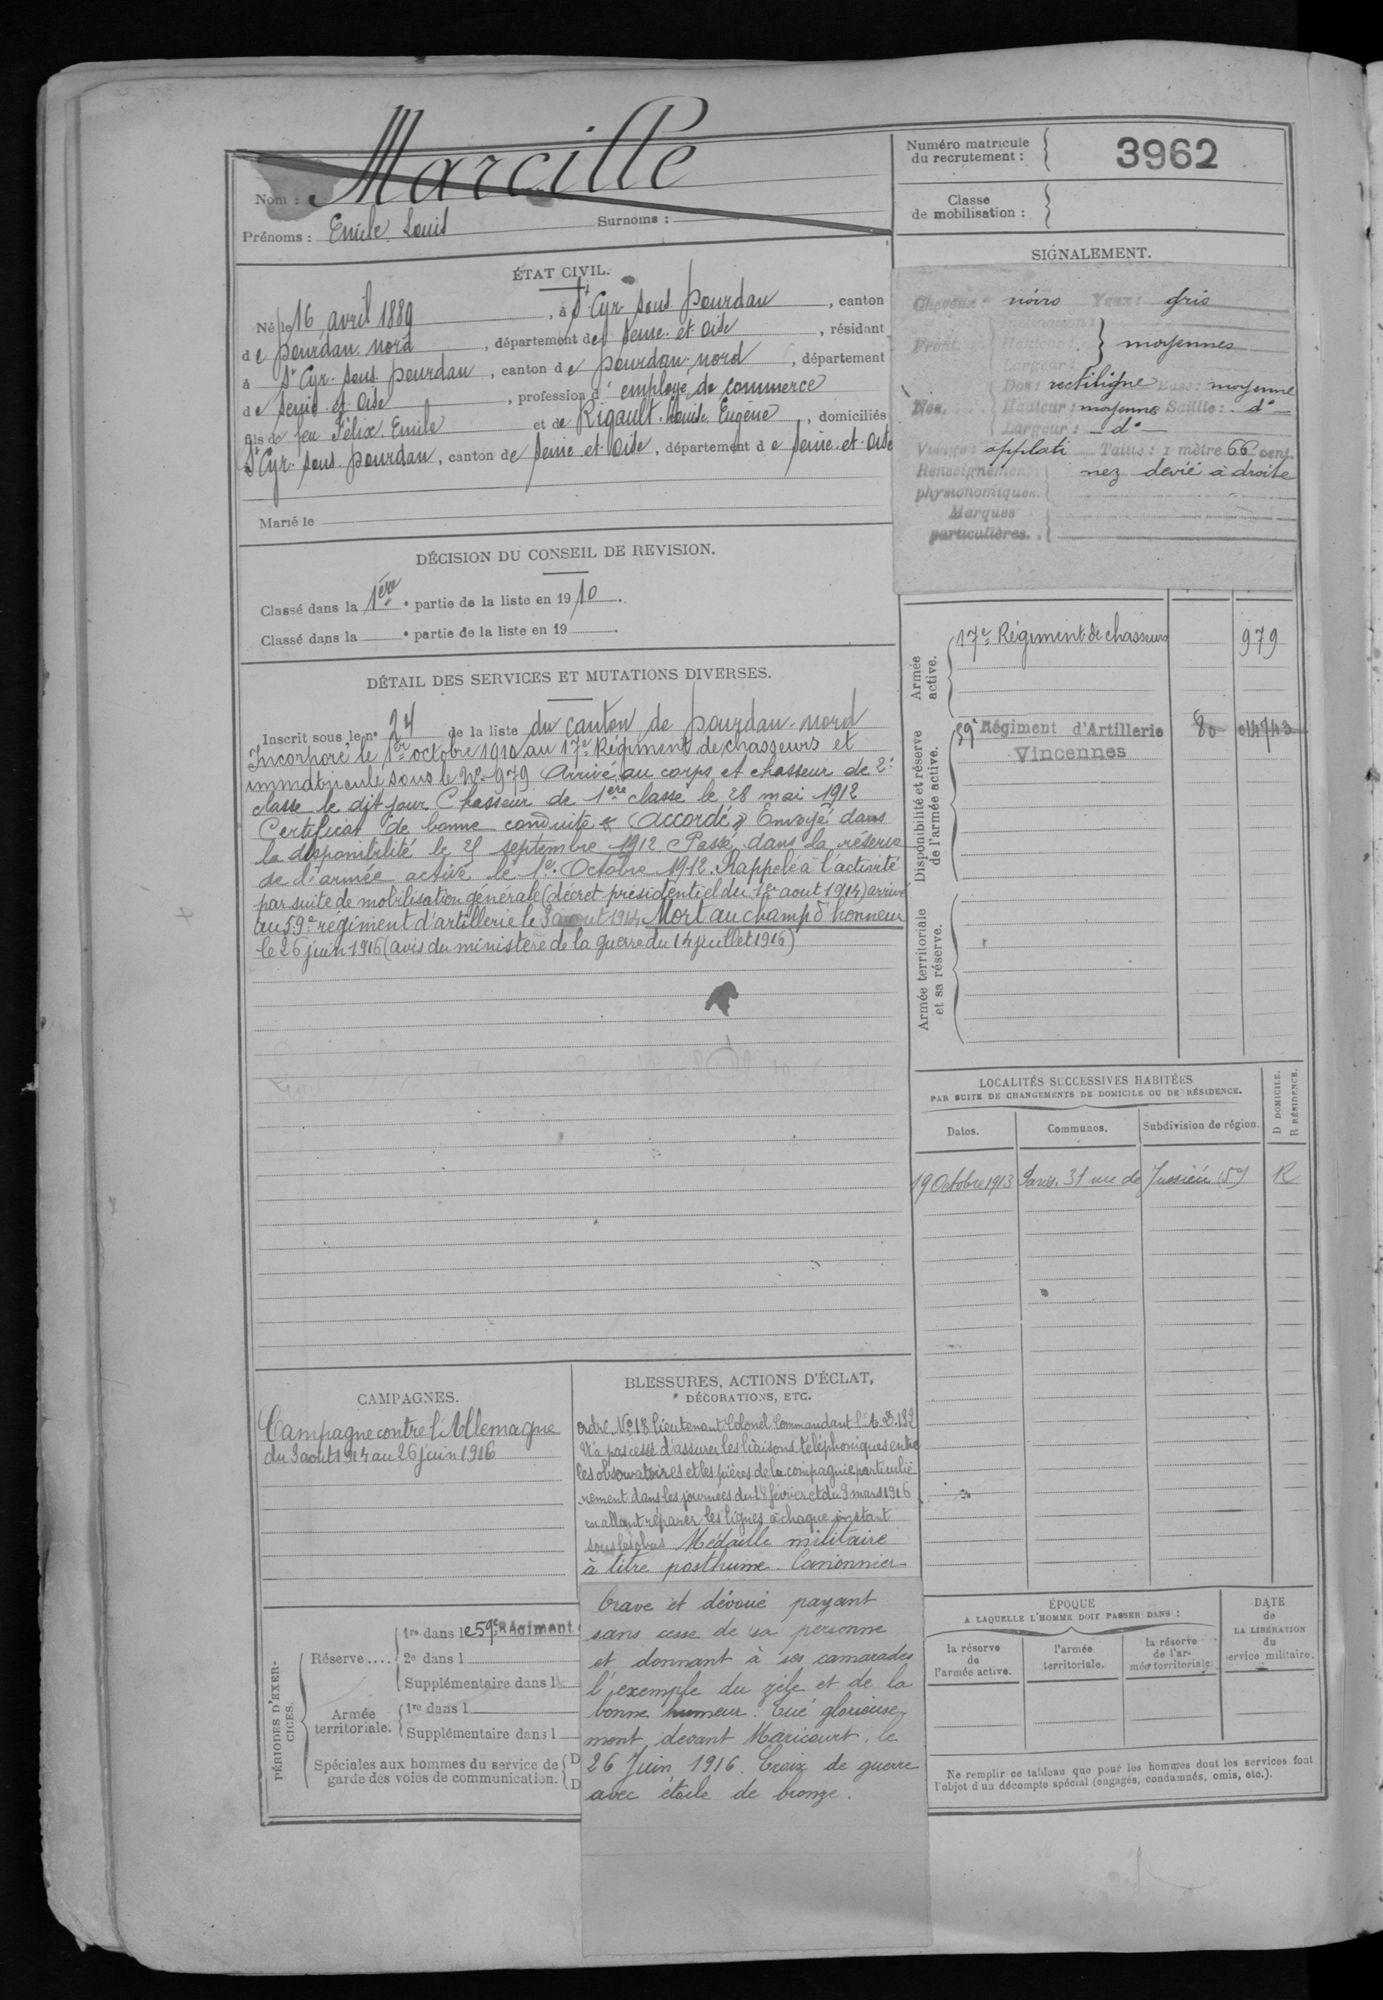 Nom : Marcille
Prénoms : Emile Louis Surnoms :
Numéro matricule
du recrutement : 3962
Classe
de mobilisation :
ÉTAT CIVIL.
Né le 16 avril 1889, à St Cyr sous Dourdan, canton
de Dourdan nord, département de Seine et Oise, résidant
à St Cyr sous Dourdan, canton de Dourdan-nord, département
de Seine et Oise, profession d'employé de commerce
fils de feu Félix Emile et de Rigault Louise Eugène, domiciliés
St Cyr sous Dourdan, canton de Seine et Oise, département de Seine et Oise
Marié le
SIGNALEMENT.
Cheveux : noirs Yeux : gris
Front. Inclinaison : Hauteur : Largeur : moyennes
Nez. Dos : rectiligne Base : moyenne
Hauteur : moyenne Saillie : do
Largeur : do
Visage : applati Taille : 1 mètre 66 cent.
Renseignements
physionomiques. nez devié à droite
Marques
particulières.
DÉCISION DU CONSEIL DE REVISION.
Classé dans la 1ère partie de la liste en 1910.
Classé dans la e partie de la liste en 19 .
DÉTAIL DES SERVICES ET MUTATIONS DIVERSES.
Inscrit sous le no 24 de la liste du canton de Dourdan-nord
Incorporé le 1er octobre 1910 au 17e Régiment de chasseurs et
immatriculé sous le No 979 Arrivé au corps et chasseur de 2e
classe le dit jour Chasseur de 1ère classe le 28 mai 1912
Certificat de bonne conduite « Accordé » Envoyé dans
la disponibilité le septembre 1912 Passé dans la réserve
de l'armée active le 1er Octobre 1912. Rappelé à l'activité
par suite de mobilisation générale (décret présidentiel du 1er aout 1914) arrivé
au 59e régiment d'artillerie le 3 aout 1914 Mort au champ d'honneur
le 26 juin 1916 (avis du ministère de la guerre du 14 juillet 1916)
Armée
active. 17e Régiment de chasseurs 979
Disponibilité et réserve
de l'armée active. 59e Régiment d'Artillerie 80 014743
Vincennes
Armée territoriale
et sa réserve.
LOCALITÉS SUCCESSIVES HABITÉES
PAR SUITE DE CHANGEMENTS DE DOMICILE OU DE RÉSIDENCE.
Dates. Communes. Subdivision de région. D DOMICILE. R RÉSIDENCE.
19 Octobre 1913 Paris. 31 rue de Jussieu (5e) R
CAMPAGNES.
Campagne contre l'Allemagne
du 3 aout 1914 au 26 juin 1916
BLESSURES, ACTIONS D'ÉCLAT,
DÉCORATIONS, ETC.
Ordre No 18 lieutenant Colonel Commandant l'A.D. 182
N'a pas cessé d'assurer les liaisons téléphoniques entre
les observatoires et les pièces de la compagnie particuliè-
rement dans les journées du 18 février et du 9 mars 1916
en allant réparer les lignes à chaque instant
sous les obus Médaille militaire
à titre posthume. Canonnier
brave et dévoué payant
sans cesse de sa personne
et donnant à ses camarades
l'exemple du zèle et de la
bonne humeur. Tué glorieuse-
ment devant Maricourt, le
26 Juin 1916. Croix de guerre
avec étoile de bronze.
PÉRIODES D'EXER-
CICES.
Réserve.... 1re dans le 59e Régiment
2e dans l
Supplémentaire dans l
Armée
territoriale. 1re dans l
Supplémentaire dans l
Spéciales aux hommes du service de
garde des voies de communication. D
D
ÉPOQUE
A LAQUELLE L'HOMME DOIT PASSER DANS :
la réserve
de
l'armée active.
l'armée
territoriale.
la réserve
de l'ar-
mée territoriale.
DATE
de
LA LIBÉRATION
du
service militaire.
Ne remplir ce tableau que pour les hommes dont les services font
l'objet d'un décompte spécial (engagés, condamnés, omis, etc.).